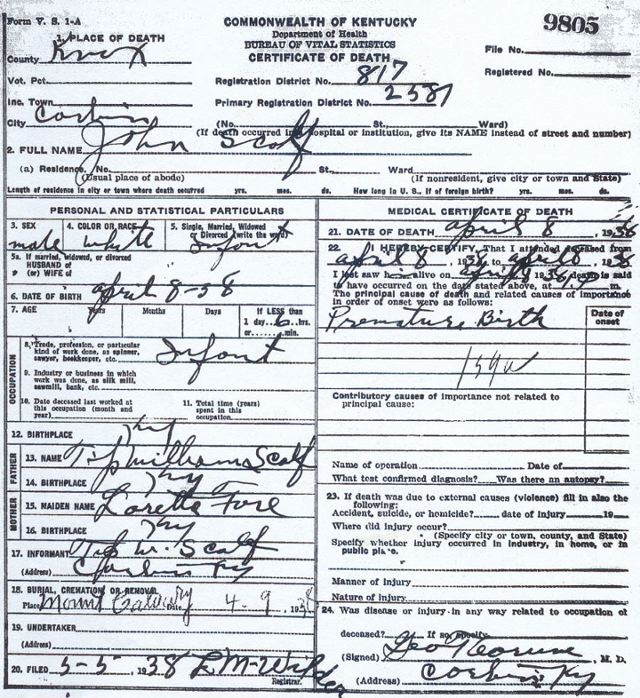 Form V. S. 1-A
COMMONWEALTH OF KENTUCKY
9805
Department of Health
BUREAU OF VITAL STATISTICS
CERTIFICATE OF DEATH
1. PLACE OF DEATH
County Knox
File No.
Registered No.
Vot. Pct.
Registration District No. 817
Inc. Town
Primary Registration District No. 2581
City Corbin
(No. St., Ward)
(If death occurred in hospital or institution, give its NAME instead of street and number)
2. FULL NAME John Scalf
(a) Residence, No. St., Ward
(Usual place of abode) (If nonresident, give city or town and State)
Length of residence in city or town where death occurred yrs. mos. ds. How long in U. S., if of foreign birth? yrs. mos. ds.
PERSONAL AND STATISTICAL PARTICULARS
3. SEX 4. COLOR OR RACE 5. Single, Married, Widowed or Divorced (write the word)
male white Infant
5a. If married, widowed, or divorced
HUSBAND of
(or) WIFE of
6. DATE OF BIRTH April 8-38
7. AGE Years Months Days If LESS than
1 day 6 hrs.
or min.
OCCUPATION
8. Trade, profession, or particular
kind of work done, as spinner,
sawyer, bookkeeper, etc. Infant
9. Industry or business in which
work was done, as silk mill,
sawmill, bank, etc.
10. Date deceased last worked at
this occupation (month and
year)
11. Total time (years)
spent in this
occupation
12. BIRTHPLACE Ky
FATHER
13. NAME Tip William Scalf
14. BIRTHPLACE Ky
MOTHER
15. MAIDEN NAME Loretta Fore
16. BIRTHPLACE Ky
17. INFORMANT Tip W. Scalf
(Address) Corbin Ky
18. BURIAL, CREMATION OR REMOVAL
Place Mount Calvary Date 4-9, 1938
19. UNDERTAKER
(Address)
20. FILED 5-5, 1938 L M
Registrar.
MEDICAL CERTIFICATE OF DEATH
21. DATE OF DEATH April 8, 1938
22. I HEREBY CERTIFY, That I attended deceased from
April 8, 1938, to April 8, 1938
I last saw h alive on April 8, 1938, death is said
to have occurred on the date stated above, at m.
The principal cause of death and related causes of importance
in order of onset were as follows:
Date of
onset
Premature Birth
159a
Contributory causes of importance not related to
principal cause:
Name of operation Date of
What test confirmed diagnosis? Was there an autopsy?
23. If death was due to external causes (violence) fill in also the
following:
Accident, suicide, or homicide? date of injury 19
Where did injury occur?
(Specify city or town, county, and State)
Specify whether injury occurred in industry, in home, or in
public place.
Manner of injury
Nature of injury
24. Was disease or injury in any way related to occupation of
deceased? If so specify
(Signed) Geo , M. D.
(Address) Corbin Ky